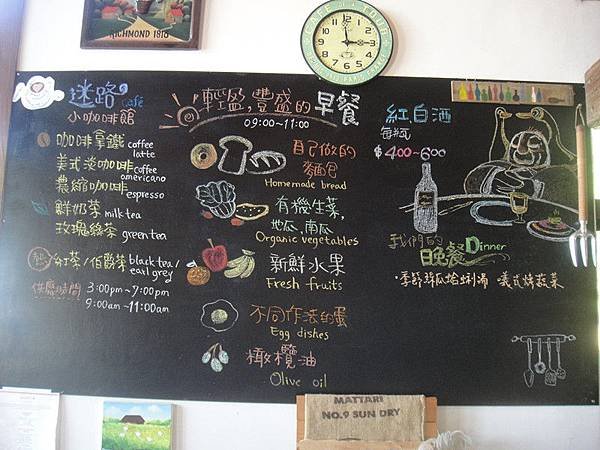 RICHMOND 1918
CAFE de la TOUR
迷路 café
小咖啡館
咖啡拿鐵 coffee latte
美式淡咖啡 coffee americano
濃縮咖啡 espresso
鮮奶茶 milk tea
玫瑰綠茶 green tea
紅茶/伯爵茶 black tea/ earl grey
供應時間 3:00pm~7:00pm
9:00am~11:00am
輕盈,豐盛的早餐
09:00~11:00
自己做的
麵包
Homemade bread
有機生菜,
地瓜,南瓜
Organic vegetables
新鮮水果
Fresh fruits
不同作法的蛋
Egg dishes
橄欖油
Olive oil
紅白酒
每瓶
$400~600
我們的
晚餐 Dinner
·季節絲瓜蛤蜊湯 義式烤蔬菜
MATTARI
NO.9 SUN DRY